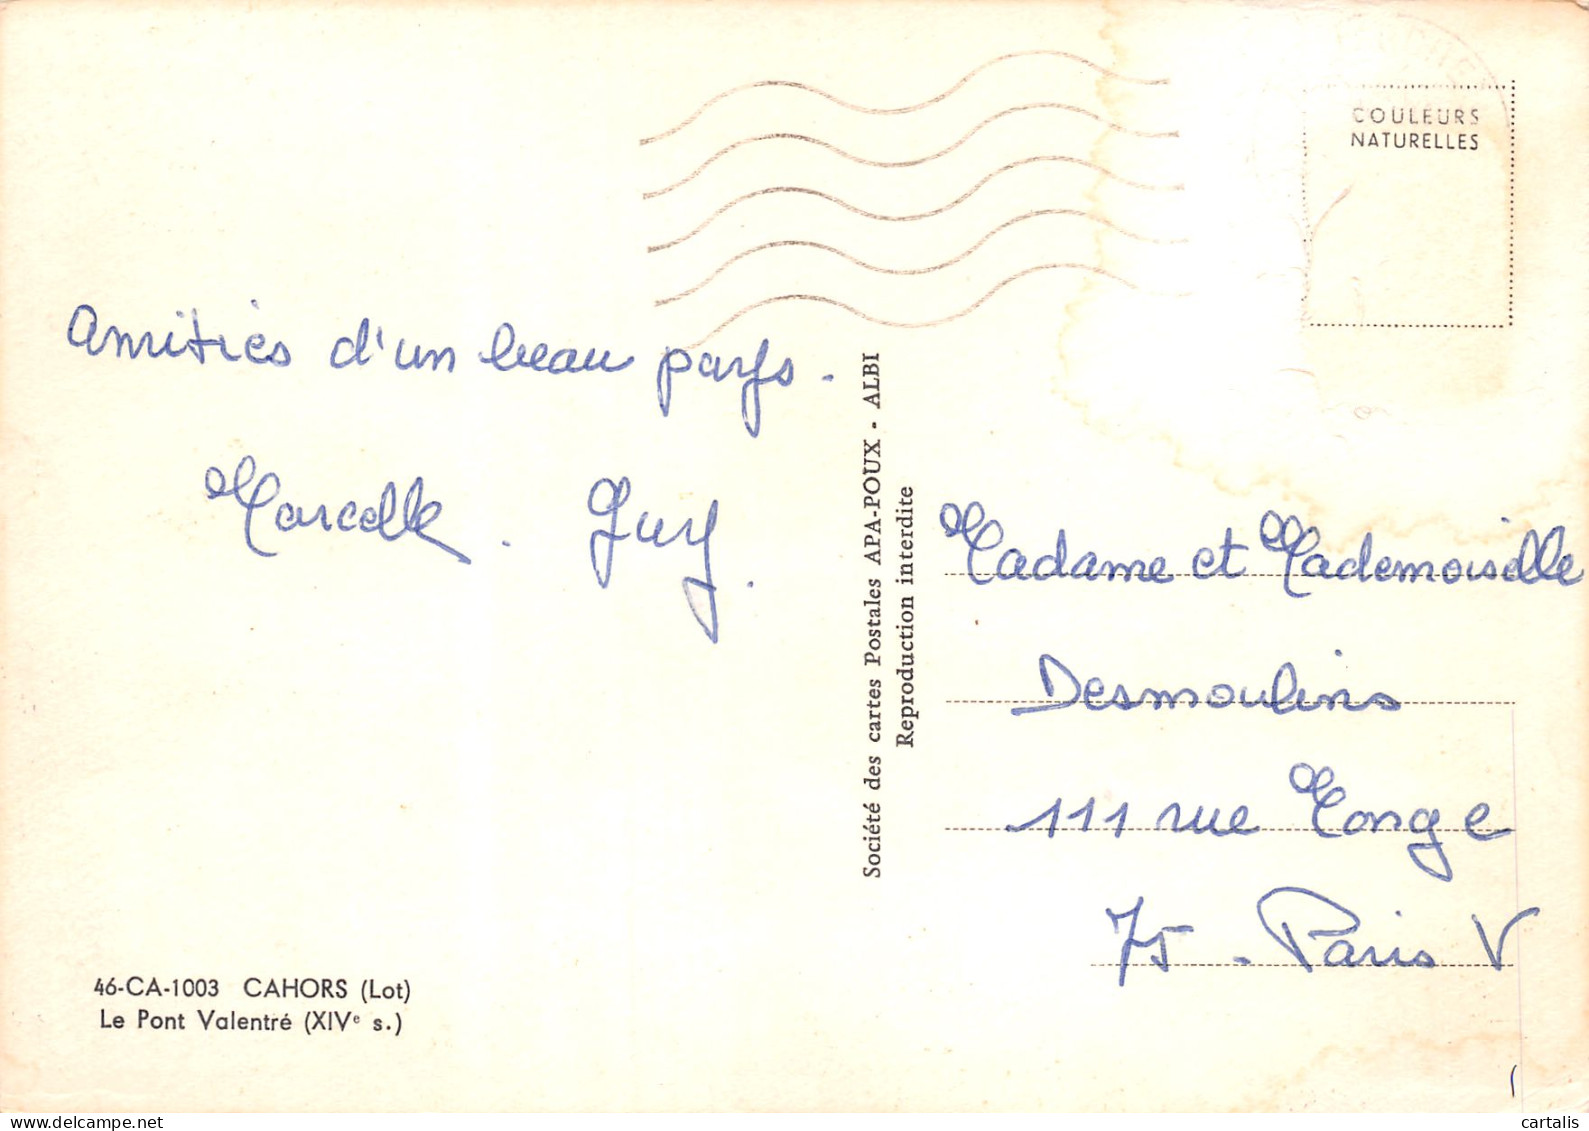 COULEURS
NATURELLES
Amitiés d'un beau pays.
Marcelle. Guy.
Société des cartes Postales APA-POUX - ALBI
Reproduction interdite
Madame et Mademoiselle
Desmoulins
111 rue Monge
75 - Paris V
46-CA-1003 CAHORS (Lot)
Le Pont Valentré (XIVe s.)
delcampe.net
cartalis